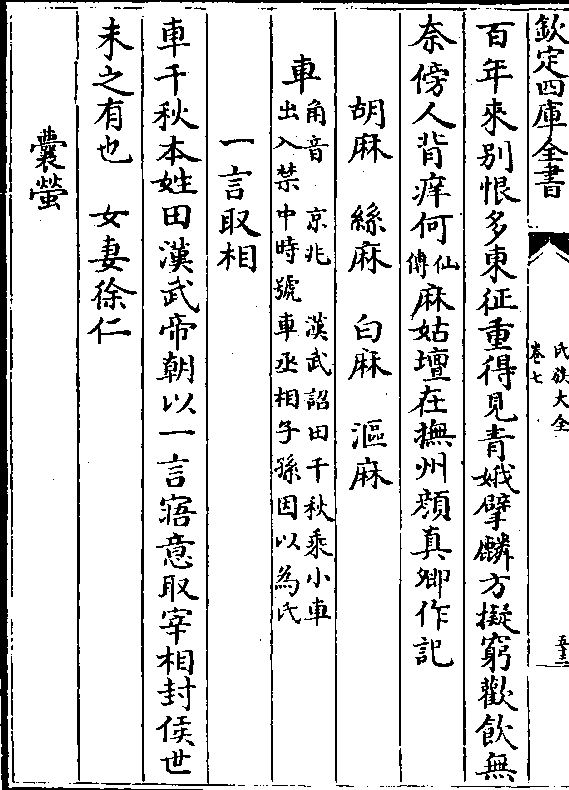 欽定四庫全書
氏族大全
卷七
百年來别恨多東征重得見青娥擘麟方擬窮歡飲無
奈傍人背痒何仙傳麻姑壇在撫州顔真卿作記
胡麻 絲麻 白麻 漚麻
車角音 京兆 漢武詔田千秋乘小車
出入禁中時號車丞相子孫因以為氏
一言取相
車千秋本姓田漢武帝朝以一言寤意取宰相封侯世
未之有也 女妻徐仁
囊螢